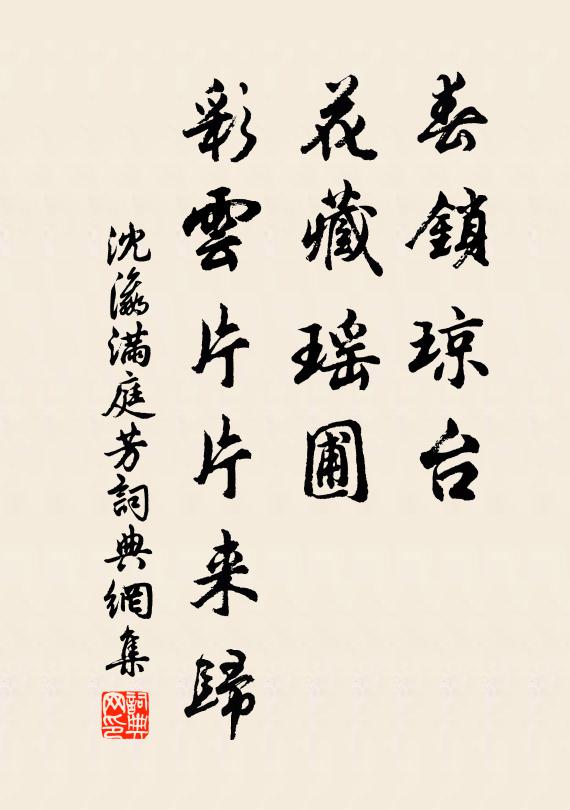 春鎖琼台
花藏瑶圃
彩雲片片来歸
沈瀛满庭芳詞典網集
詞典网印